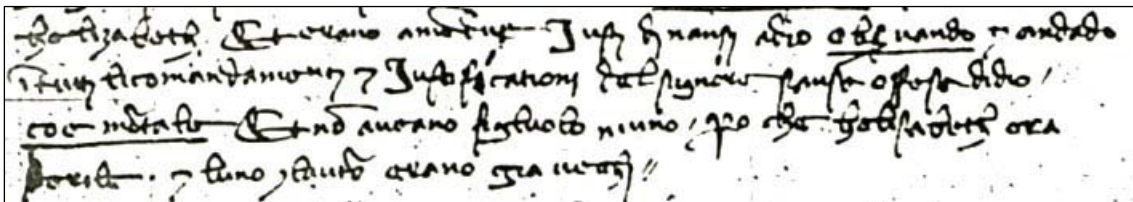 helizabeth. Et erano amendue Justi dinanzi adio obs̄uando ⁊ andado
ī tutti licomandamenti ⁊ Justificationi del signore sanse offese didio /
coe mortale Et nō aueano figluolo niuno / po che helisabeth era
sterile. ⁊ luno ⁊ laltro erano gia uechi //